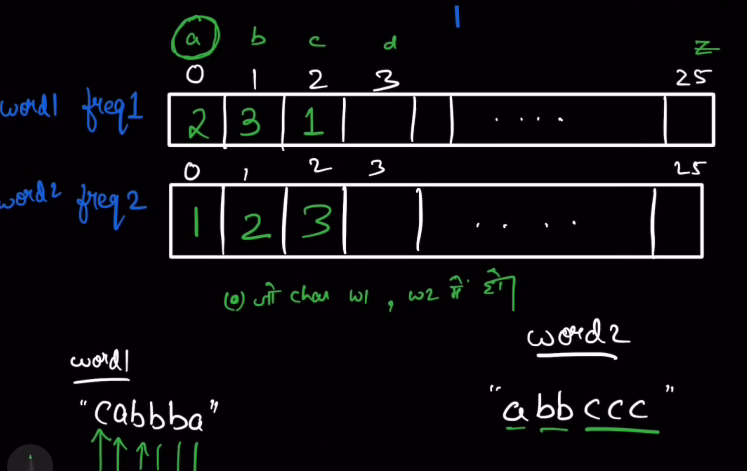 a b c d z
0 1 2 3 25
word1 freq1 2 3 1 ....
0 1 2 3 25
word2 freq2 1 2 3 ....
(0) जो char w1, w2 में है
word2
word1
"cabbba" "abbccc"